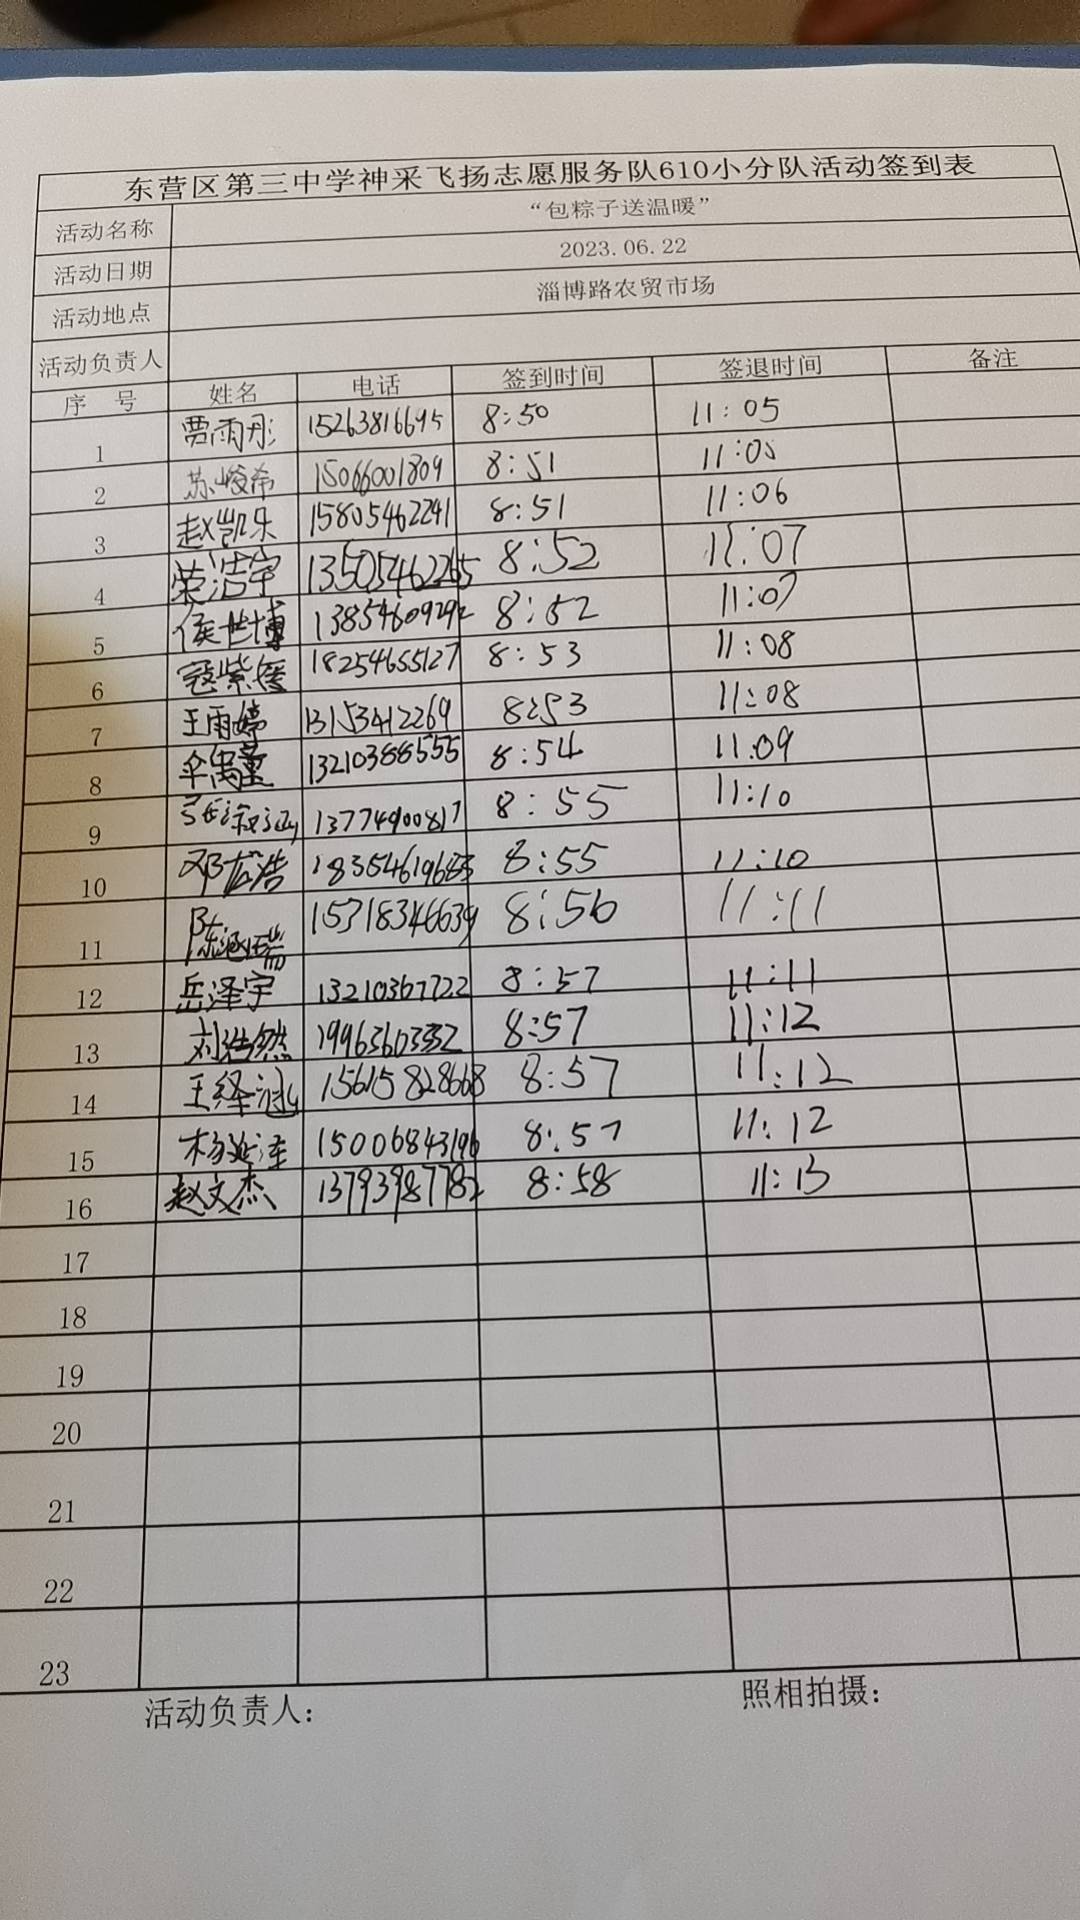 东营区第三中学神采飞扬志愿服务队610小分队活动签到表
活动名称 “包粽子送温暖”
活动日期 2023.06.22
活动地点 淄博路农贸市场
活动负责人
序 号 姓名 电话 签到时间 签退时间 备注
1 贾雨彤 15263816695 8:50 11:05
2 苏峻希 15066001809 8:51 11:05
3 赵凯乐 15805462241 8:51 11:06
4 荣浩宇 13505462265 8:52 11:07
5 侯世博 13854609292 8:52 11:07
6 寇紫媛 18254655127 8:53 11:08
7 王雨婷 13153412269 8:53 11:08
8 伞禹董 13210388555 8:54 11:09
9 张淑涵 13774900817 8:55 11:10
10 邓宏浩 8:55 11:10
11 陈涵瑞 15318346639 8:56 11:11
12 岳泽宇 13210367722 8:57 11:11
13 刘浩然 19963603332 8:57 11:12
14 王绎涵 15615828668 8:57 11:12
15 杨延泽 15006843196 8:57 11:12
16 赵文杰 13793987782 8:58 11:13
17
18
19
20
21
22
23
活动负责人： 照相拍摄：